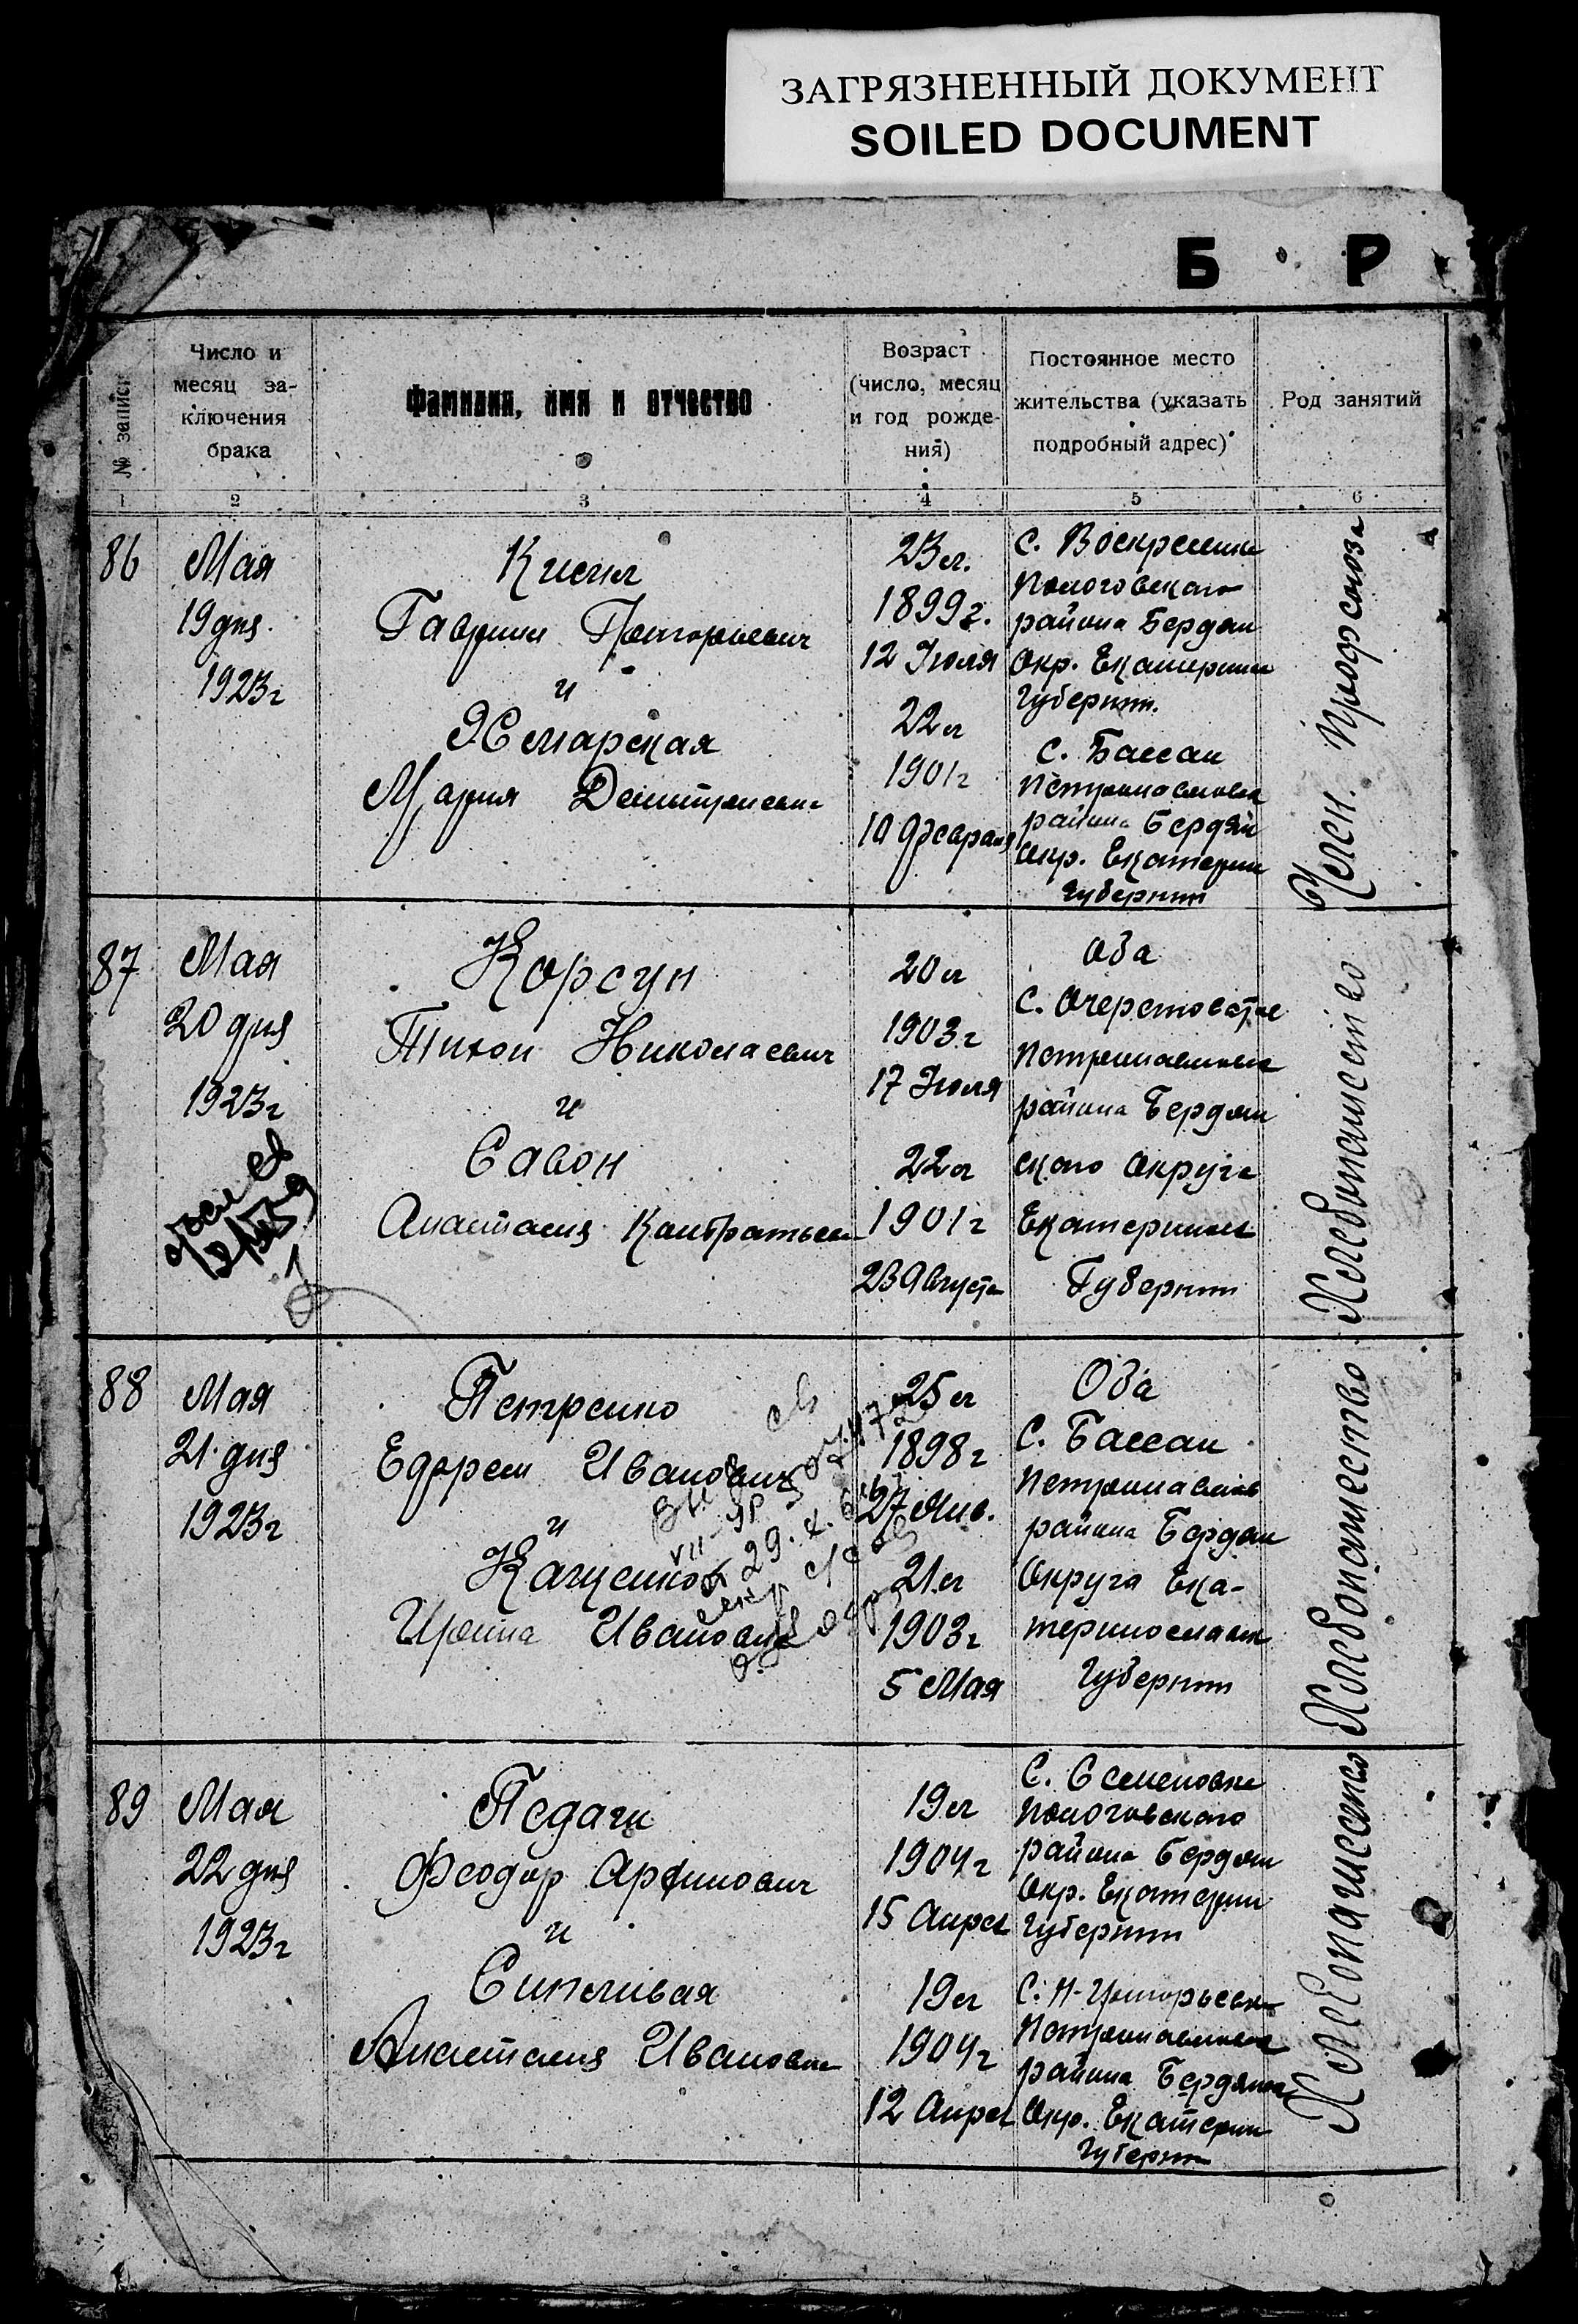 ЗАГРЯЗНЕННЫЙ ДОКУМЕНТ
SOILED DOCUMENT
Б Р
№ записи
Число и
месяц за-
ключения
брака
Фамилия, имя и отчество
Возраст
(число, месяц
и год рожде-
ния)
Постоянное место
жительства (указать
подробный адрес)
Род занятий
1
2
3
4
5
6
86
Мая
19 дня
1923г
Гавриил Григорьевич
и
Хмарская
Мария
23л.
1899г.
12 Июля
22л
1901г
10 Февраля
района Бердян
Окр. Екатерин
Губернии.
С. Бассан
района Бердян
Окр. Екатерин
Губернии
Член. Профсоюза
87
Мая
20 дня
1923г
Корсун
Тихон Николаевич
и
Савон
Анастасия
20л
1903г
17 Июля
22л
1901г
23 Августа
Оба
С.
района Бердян
ского Округа
Губернии
Хлебопашество
88
Мая
21 дня
1923г
Петренко
Ефрем Иванович
и
Ирина Ивановна
25л
1898г
27 Янв.
21л
1903г
5 Мая
Оба
С. Бассан
района Бердян
Округа Ека-
теринослав
Губернии
Хлебопашество
89
Мая
22 дня
1923г
Педаги
Феодор
и
Сипливая
Анастасия Ивановна
19л
1904г
15 Апрел
19л
1904г
12 Апрел
С.
Пологовского
района Бердян
Окр. Екатерин
Губернии
С. Н-Григорьевк
района Бердянск
Окр. Екатерин
Губерни
Хлебопашество